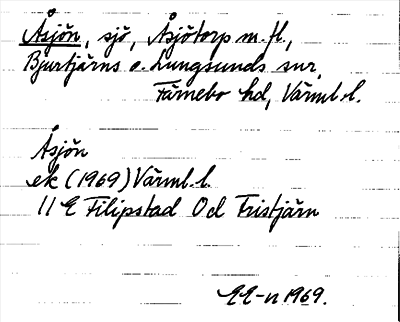 Åsjön, sjö, Åsjötorp m.fl.,
Bjurtjärns o. Lungsunds snr,
Färnebo hd, Värml. l.
Åsjön
ek (1969) Värml. l.
11 E Filipstad 0d Tristjärn
EE-n 1969.